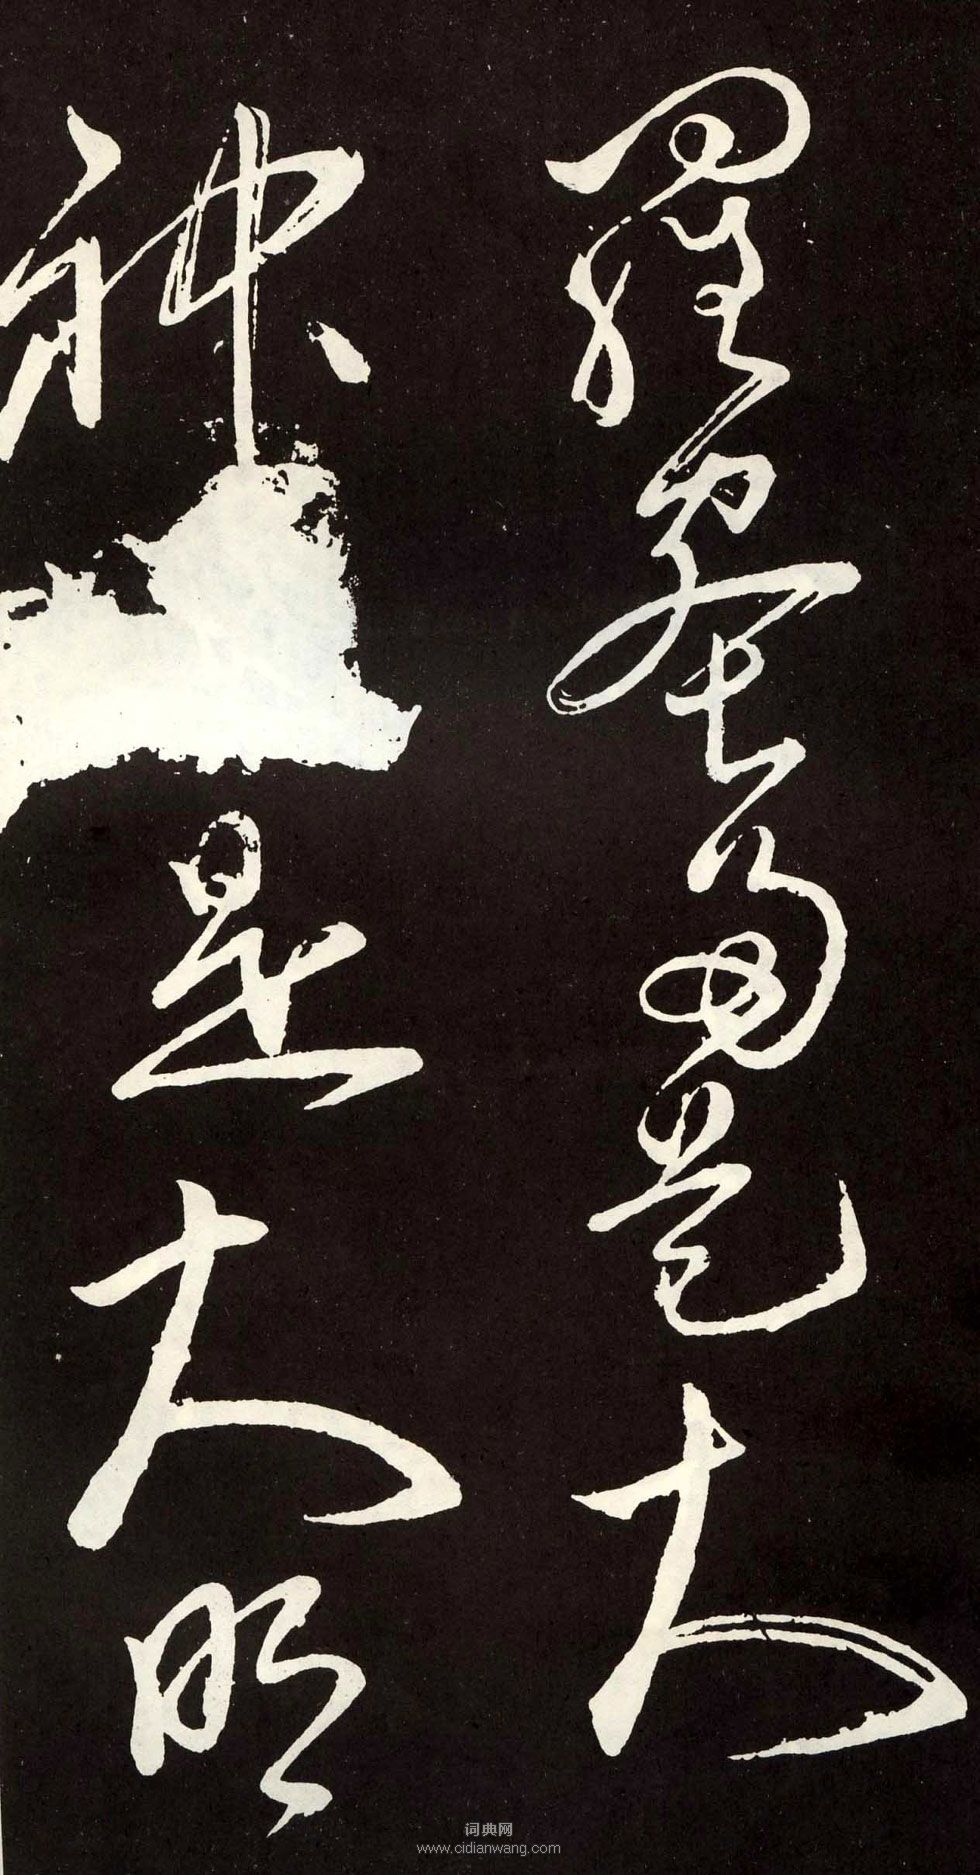 羅蜜多是大
神□是大明
词典网
www.cidianwang.com